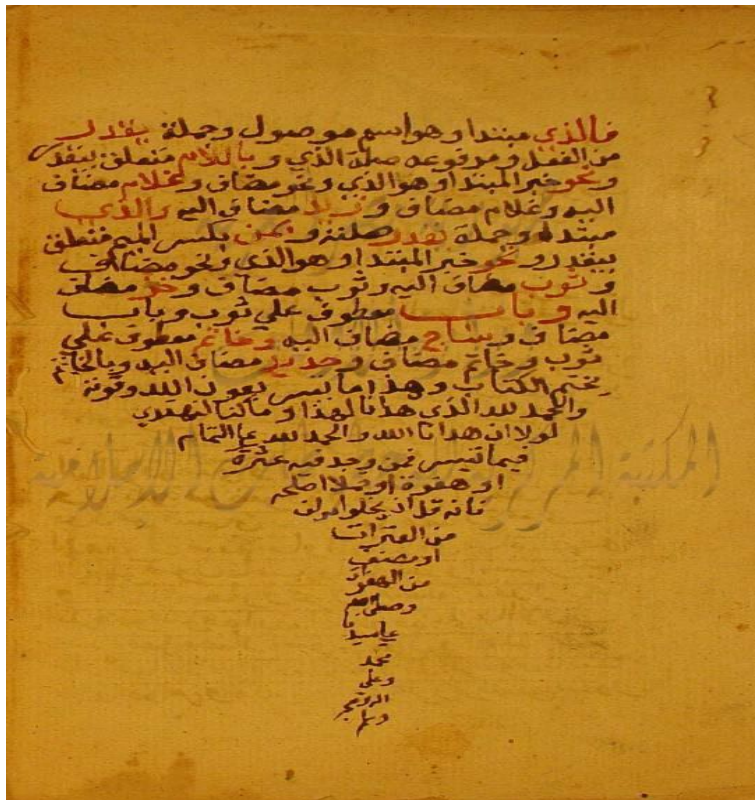 فالذي مبتدا وهو اسم موصول وجملة يقدر
من الفعل ومرفوعه صلة الذي وباللام متعلق بيقدر
ونحو خبر المبتدا وهو الذي ونحو مضاف وغلام مضاف
اليه وغلام مضاف وزيد مضاف اليه والذي
مبتدا وجملة يقدر صلته وبمن بكسر الميم متعلق
بيقدر ونحو خبر المبتدا وهو الذي ونحو مضاف
وثوب مضاف اليه وثوب مضاف وخز مضاف
اليه وباب معطوف علي ثوب وباب
مضاف وساج مضاف اليه وخاتم معطوف علي
ثوب وخاتم مضاف وحديد مضاف اليه وبالخاتم
يختم الكتاب وهذا ما تيسر بعون الله وقوته
والحمد لله الذي هدانا لهذا وما كنا لنهتدي
لولا ان هدانا الله والحمد لله علي التمام
فيما تيسر فمن وجد فيه عثرة
او هفوة او خللا اصلحه
فانه قل ان يخلوا مولف
من العثرات
او مصنف
من الهفوات
وصلي الله
علي سيدنا
محمد
وعلى
اله وصحبه
وسلم
المكتبة الإسلامية